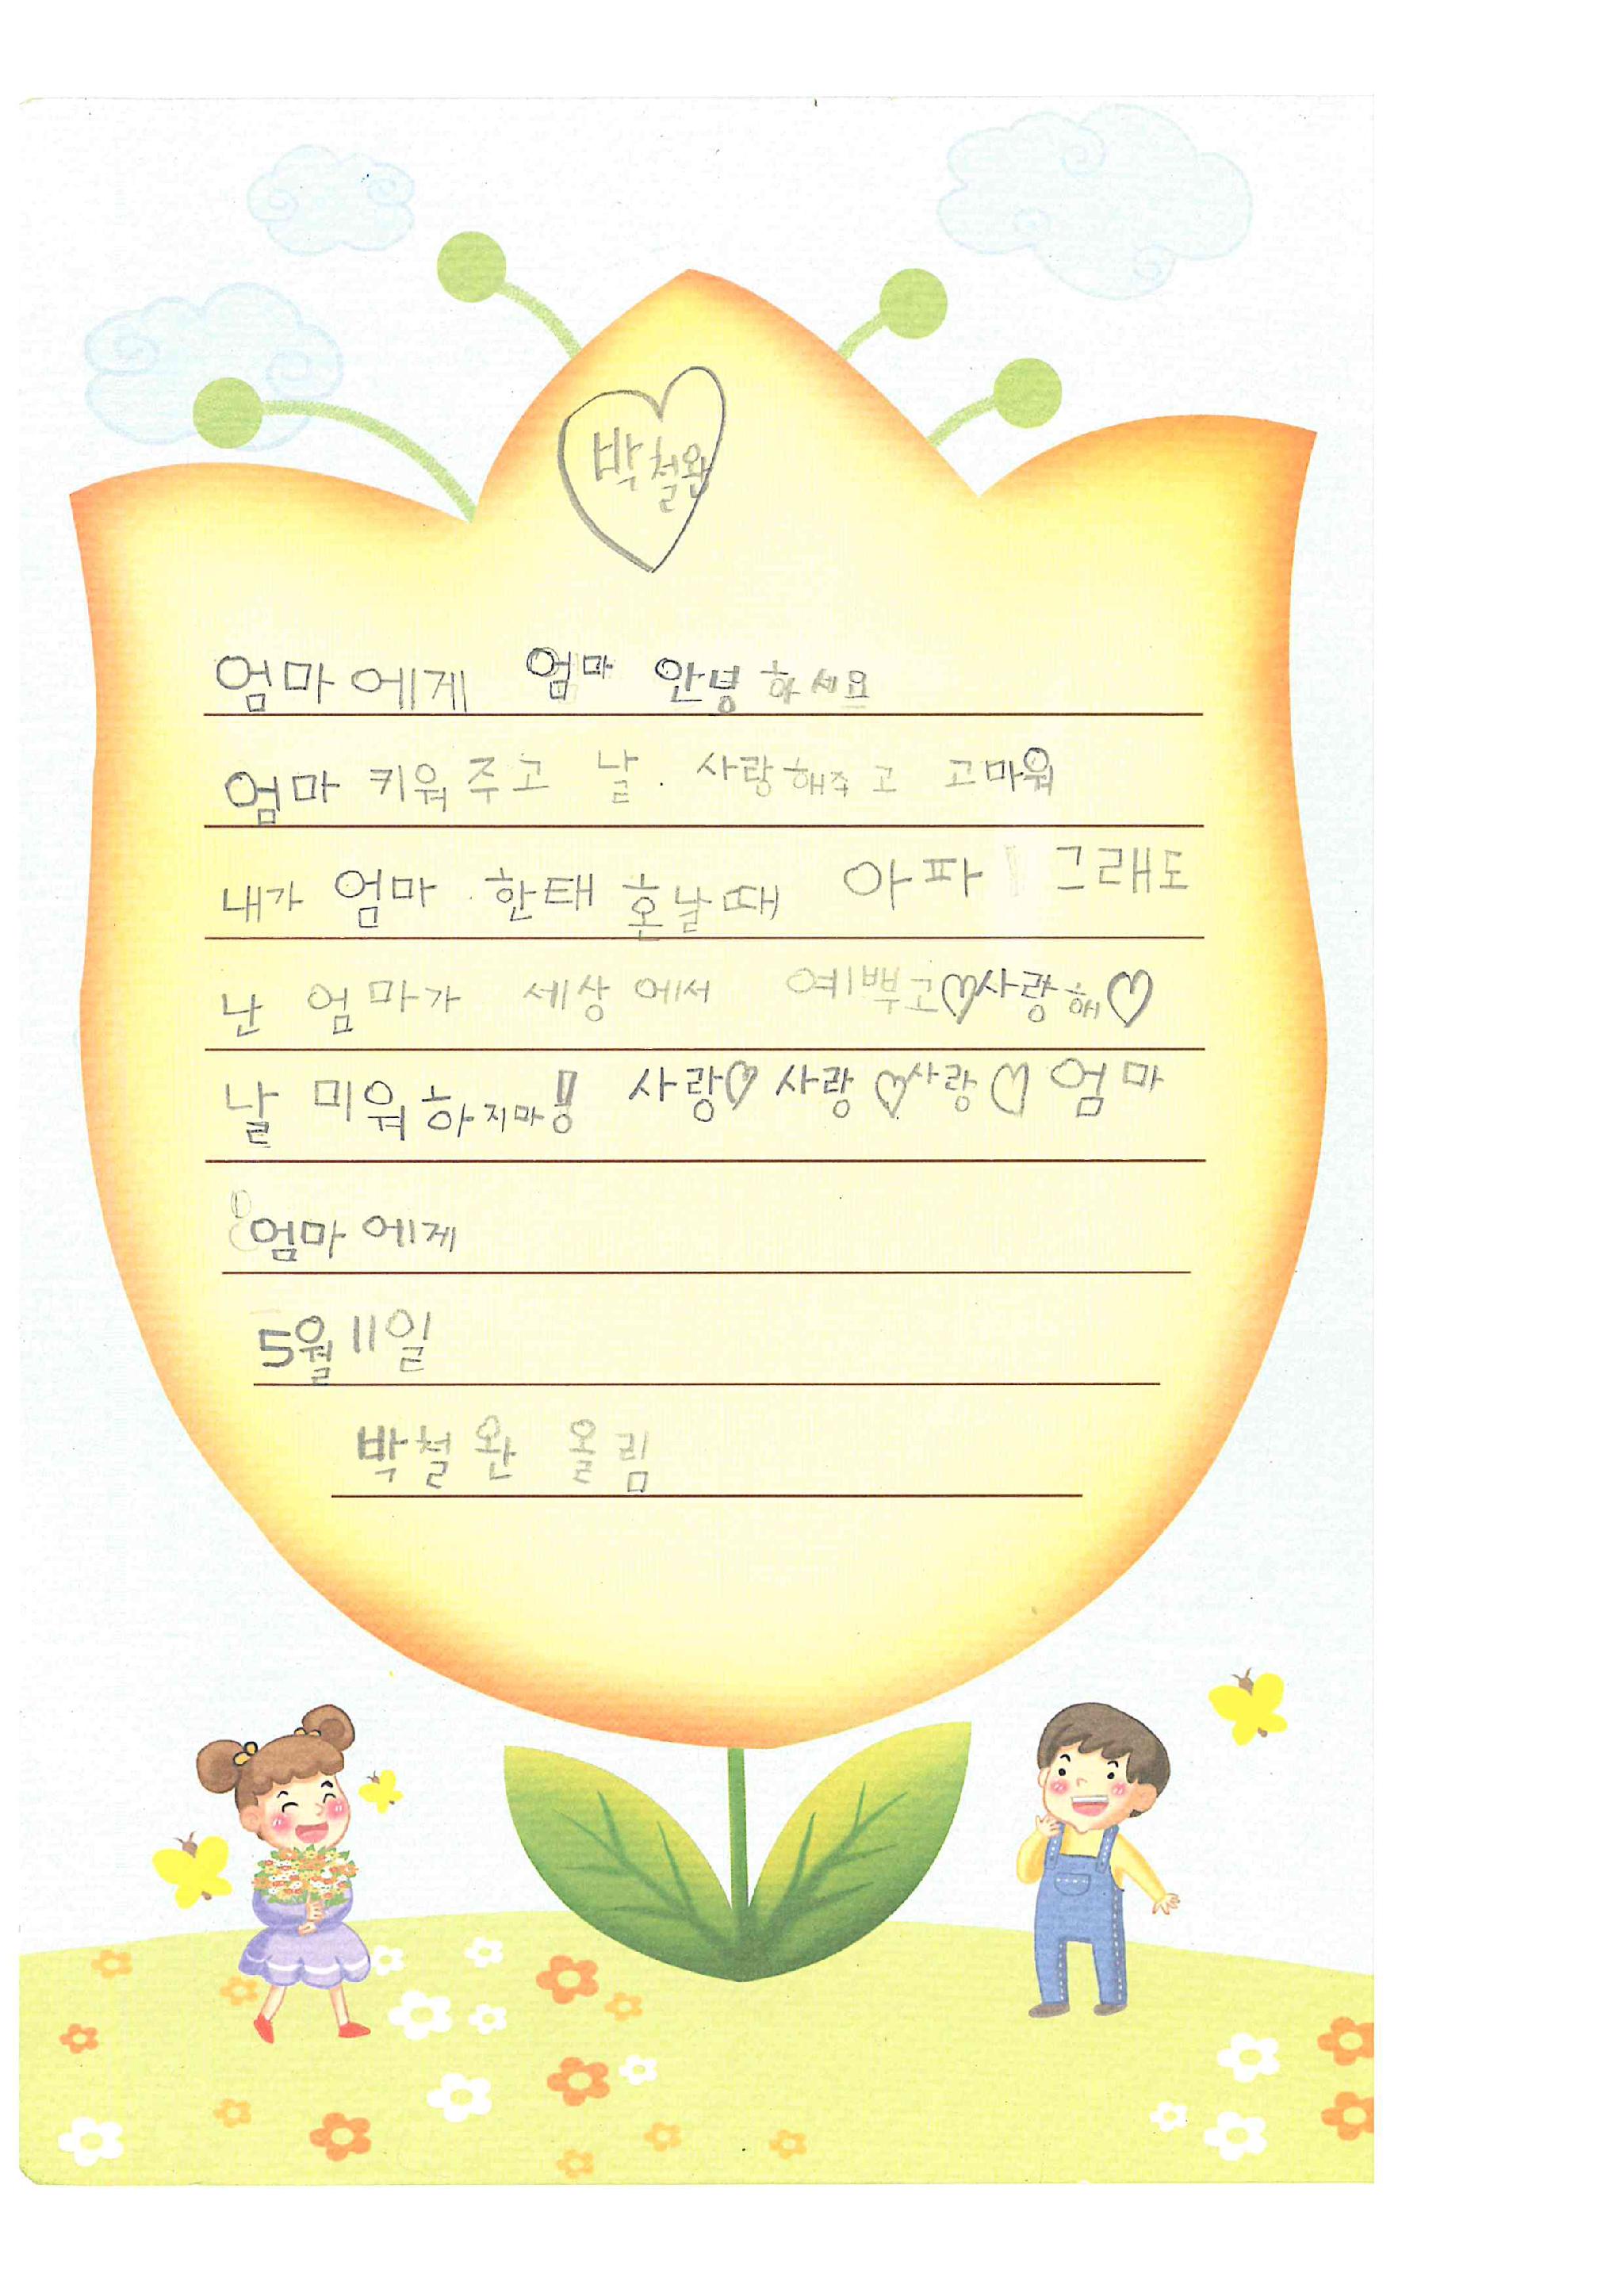 박철완
엄마에게 엄마 안녕하세요
엄마 키워주고 날 사랑해주고 고마워
내가 엄마 한태 혼날때 아파 그래도
난 엄마가 세상에서 예쁙고♡사랑해♡
날 미워하지마! 사랑♡사랑♡사랑♡엄마
엄마에게
5월11일
박철완 올림